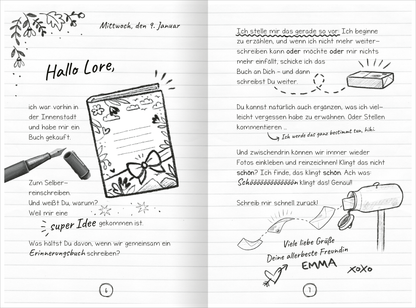 Mittwoch, den 9. Januar
Hallo Lore,
ich war vorhin in
der Innenstadt
und habe mir ein
Buch gekauft.
Zum Selber-
reinschreiben.
Und weißt Du, warum?
Weil mir eine
super Idee gekommen ist.
Was hältst Du davon, wenn wir gemeinsam ein
Erinnerungsbuch schreiben?
6
Ich stelle mir das gerade so vor: Ich beginne
zu erzählen, und wenn ich nicht mehr weiter-
schreiben kann oder möchte oder mir nichts
mehr einfällt, schicke ich das
Buch an Dich – und dann
schreibst Du weiter.
Du kannst natürlich auch ergänzen, was ich viel-
leicht vergessen habe zu erwähnen. Oder Stellen
kommentieren ...
Ich werde das ganz bestimmt tun, hihi.
Und zwischendrin können wir immer wieder
Fotos einkleben und reinzeichnen! Klingt das nicht
schön? Ich finde, das klingt schön. Ach was:
klingt das! Genau!
Schreib mir schnell zurück!
Viele liebe Grüße
Deine allerbeste Freundin
EMMA
XOXO
7